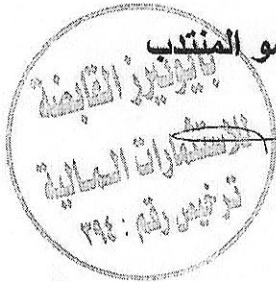 و المنتدب
بايونيرز القابضة
للاستثمارات المالية
ترخيص رقم : ٣٩٤